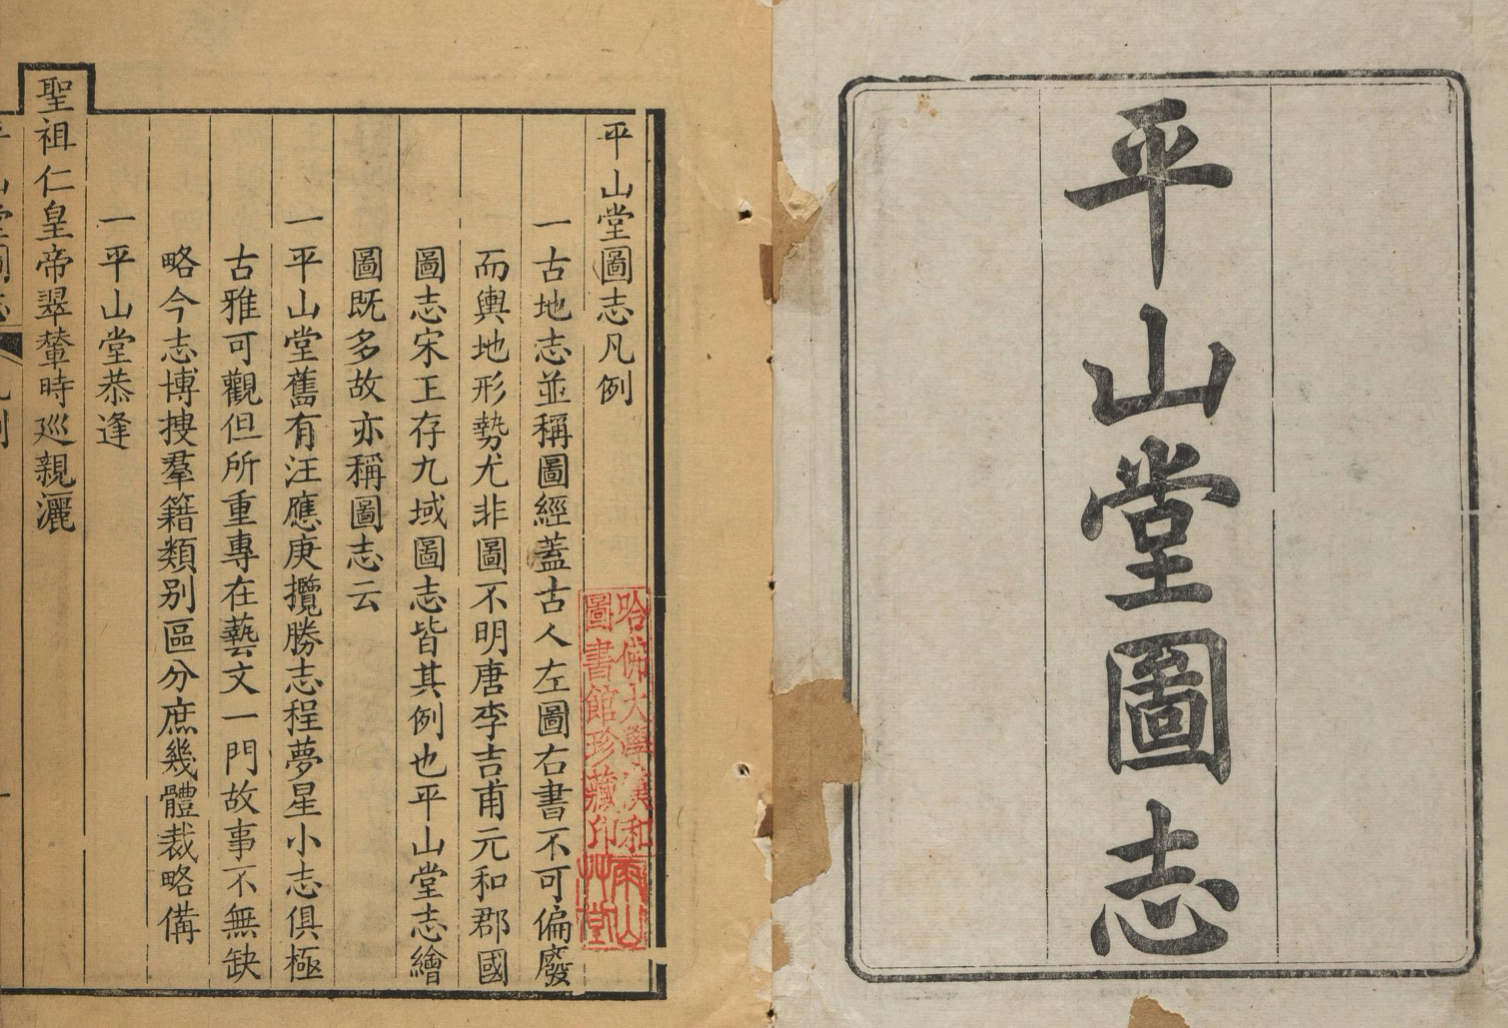 平山堂圖志
平山堂圖志凡例
一古地志並稱圖經蓋古人左圖右書不可偏廢
而輿地形勢尤非圖不明唐李吉甫元和郡國
圖志宋王存九域圖志皆其例也平山堂志繪
圖既多故亦稱圖志云
一平山堂舊有汪應庚攬勝志程夢星小志俱極
古雅可觀但所重專在藝文一門故事不無缺
略今志博捜羣籍類别區分庶幾體裁略備
一平山堂恭逢
聖祖仁皇帝翠輦時巡親灑
哈佛大學漢和
圖書館珍藏印
雨山
艸堂